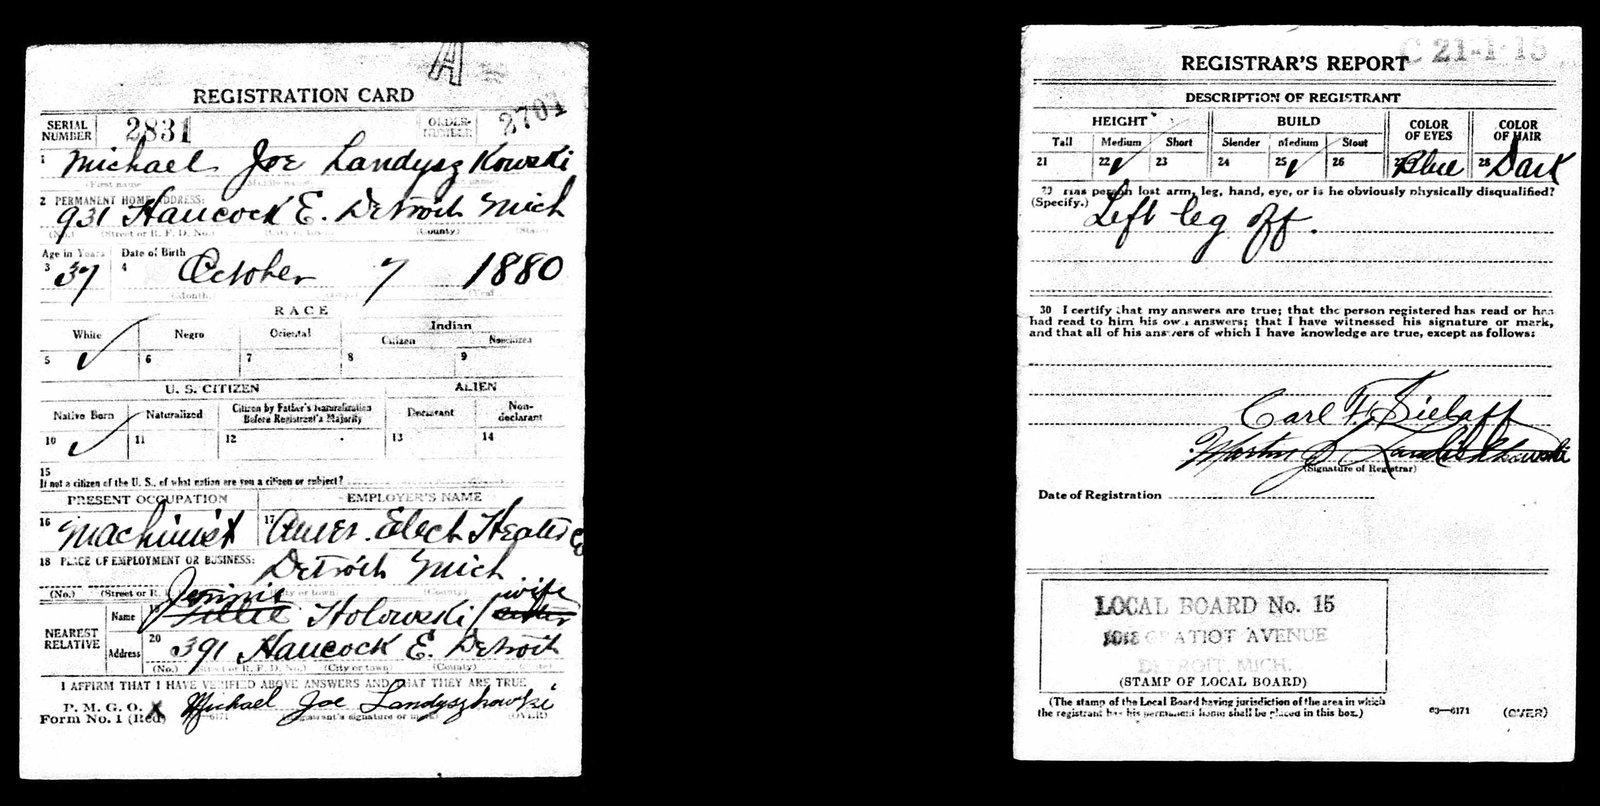 A
REGISTRATION CARD
SERIAL NUMBER 2831 ORDER NUMBER 2701
1 Michael Joe Landyszkowski
(First name) (Middle name)
2 PERMANENT HOME ADDRESS:
931 Hancock E. Detroit Mich
(No.) (Street or R. F. D. No.) (City or town) (County) (State)
Age in Years Date of Birth
3 37 4 October 7 1880
(Month) (Year)
RACE
White Negro Oriental Indian
Citizen Noncitizen
5 ✓ 6 7 8 9
U. S. CITIZEN ALIEN
Native Born Naturalized Citizen by Father's Naturalization Before Registrant's Majority Declarant Non-declarant
10 ✓ 11 12 13 14
15
If not a citizen of the U. S., of what nation are you a citizen or subject?
PRESENT OCCUPATION EMPLOYER'S NAME
16 Machinist 17 Amer. Elect Heater Co
18 PLACE OF EMPLOYMENT OR BUSINESS:
Detroit Mich
(No.) (Street or R. (City or town) (County)
NEAREST RELATIVE
Name 19 Jennie Holowski / wife
Address 20 391 Hancock E. Detroit
(No.) (Street or R. F. D. No.) (City or town) (County) (State)
I AFFIRM THAT I HAVE VERIFIED ABOVE ANSWERS AND THAT THEY ARE TRUE
P. M. G. O.
Form No. 1 (Red) X Michael Joe Landyszkowski
(Registrant's signature or mark) (OVER)
C 21-1-15
REGISTRAR'S REPORT
DESCRIPTION OF REGISTRANT
HEIGHT BUILD COLOR OF EYES COLOR OF HAIR
Tall Medium Short Slender Medium Stout
21 22 ✓ 23 24 25 ✓ 26 27 Blue 28 Dark
29 Has person lost arm, leg, hand, eye, or is he obviously physically disqualified?
(Specify.) Left leg off.
30 I certify that my answers are true; that the person registered has read or has
had read to him his own answers; that I have witnessed his signature or mark,
and that all of his answers of which I have knowledge are true, except as follows:
Carl F. Sielaff
(Signature of Registrar)
Date of Registration
LOCAL BOARD No. 15
GRATIOT AVENUE
DETROIT, MICH.
(STAMP OF LOCAL BOARD)
(The stamp of the Local Board having jurisdiction of the area in which
the registrant has his permanent home shall be placed in this box.)
63—6171 (OVER)